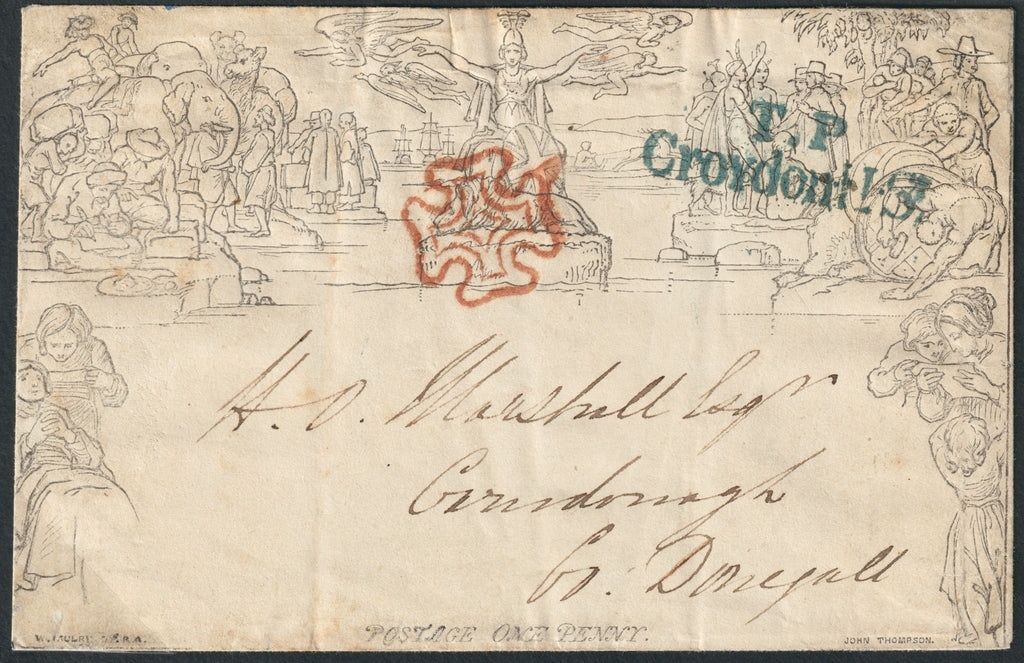 T.P
Croydon
H. D. Marshall Esqr
Carndonagh
Co. Donegall
W. MULREADY R.A.
POSTAGE ONE PENNY.
JOHN THOMPSON.